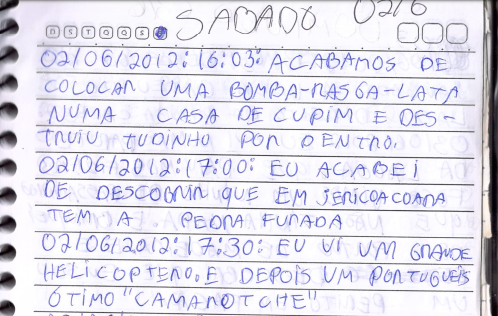 SABADO 02/6
D S T Q Q S S
02/06/2012: 16:03: ACABAMOS DE
COLOCAR UMA BOMBA-RASGA-LATA
NUMA CASA DE CUPIM E DES-
TRUIU TUDINHO POR DENTRO.
02/06/2012: 17:00: EU ACABEI
DE DESCOBRIR QUE EM JERICOACOARA
TEM A PEDRA FURADA
02/06/2012: 17:30: EU VI UM GRANDE
HELICOPTERO. E DEPOIS UM PORTUGUÊS
ÓTIMO "CAMAROTCHE"